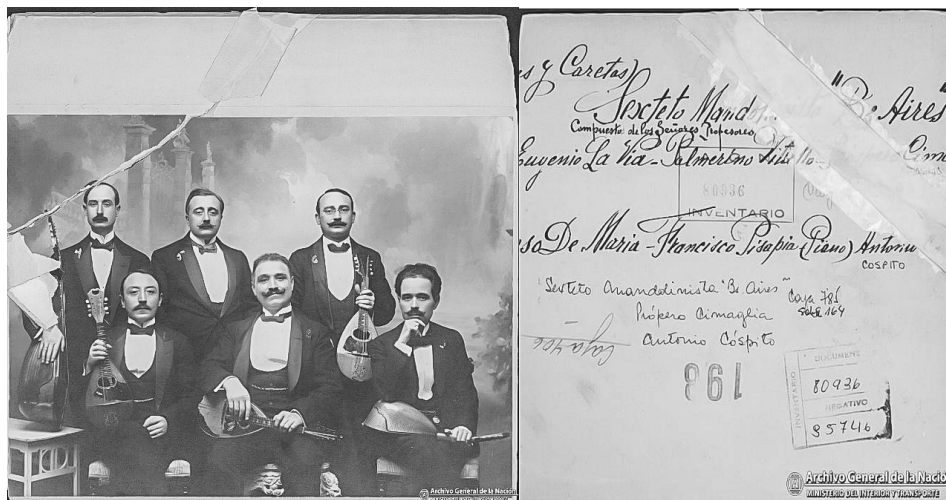 Archivo General de la Nación
es y Caretas)
Sexteto "Bs Aires"
Compuesto de los Señores Profesores
Eugenio La Via - Palmerino
80936
INVENTARIO
De Maria - Francisco Pisapia (Piano) Antonio
COSPITO
"Sexteto mandolinista "Bs Aires"
Caja 785
Sobre 164
Própero Cimaglia
Antonio Cóspito
Caja 406
198
DOCUMENT
INVENTARIO
80936
NEGATIVO
95746
Archivo General de la Nación
MINISTERIO DEL INTERIOR Y TRANSPORTE